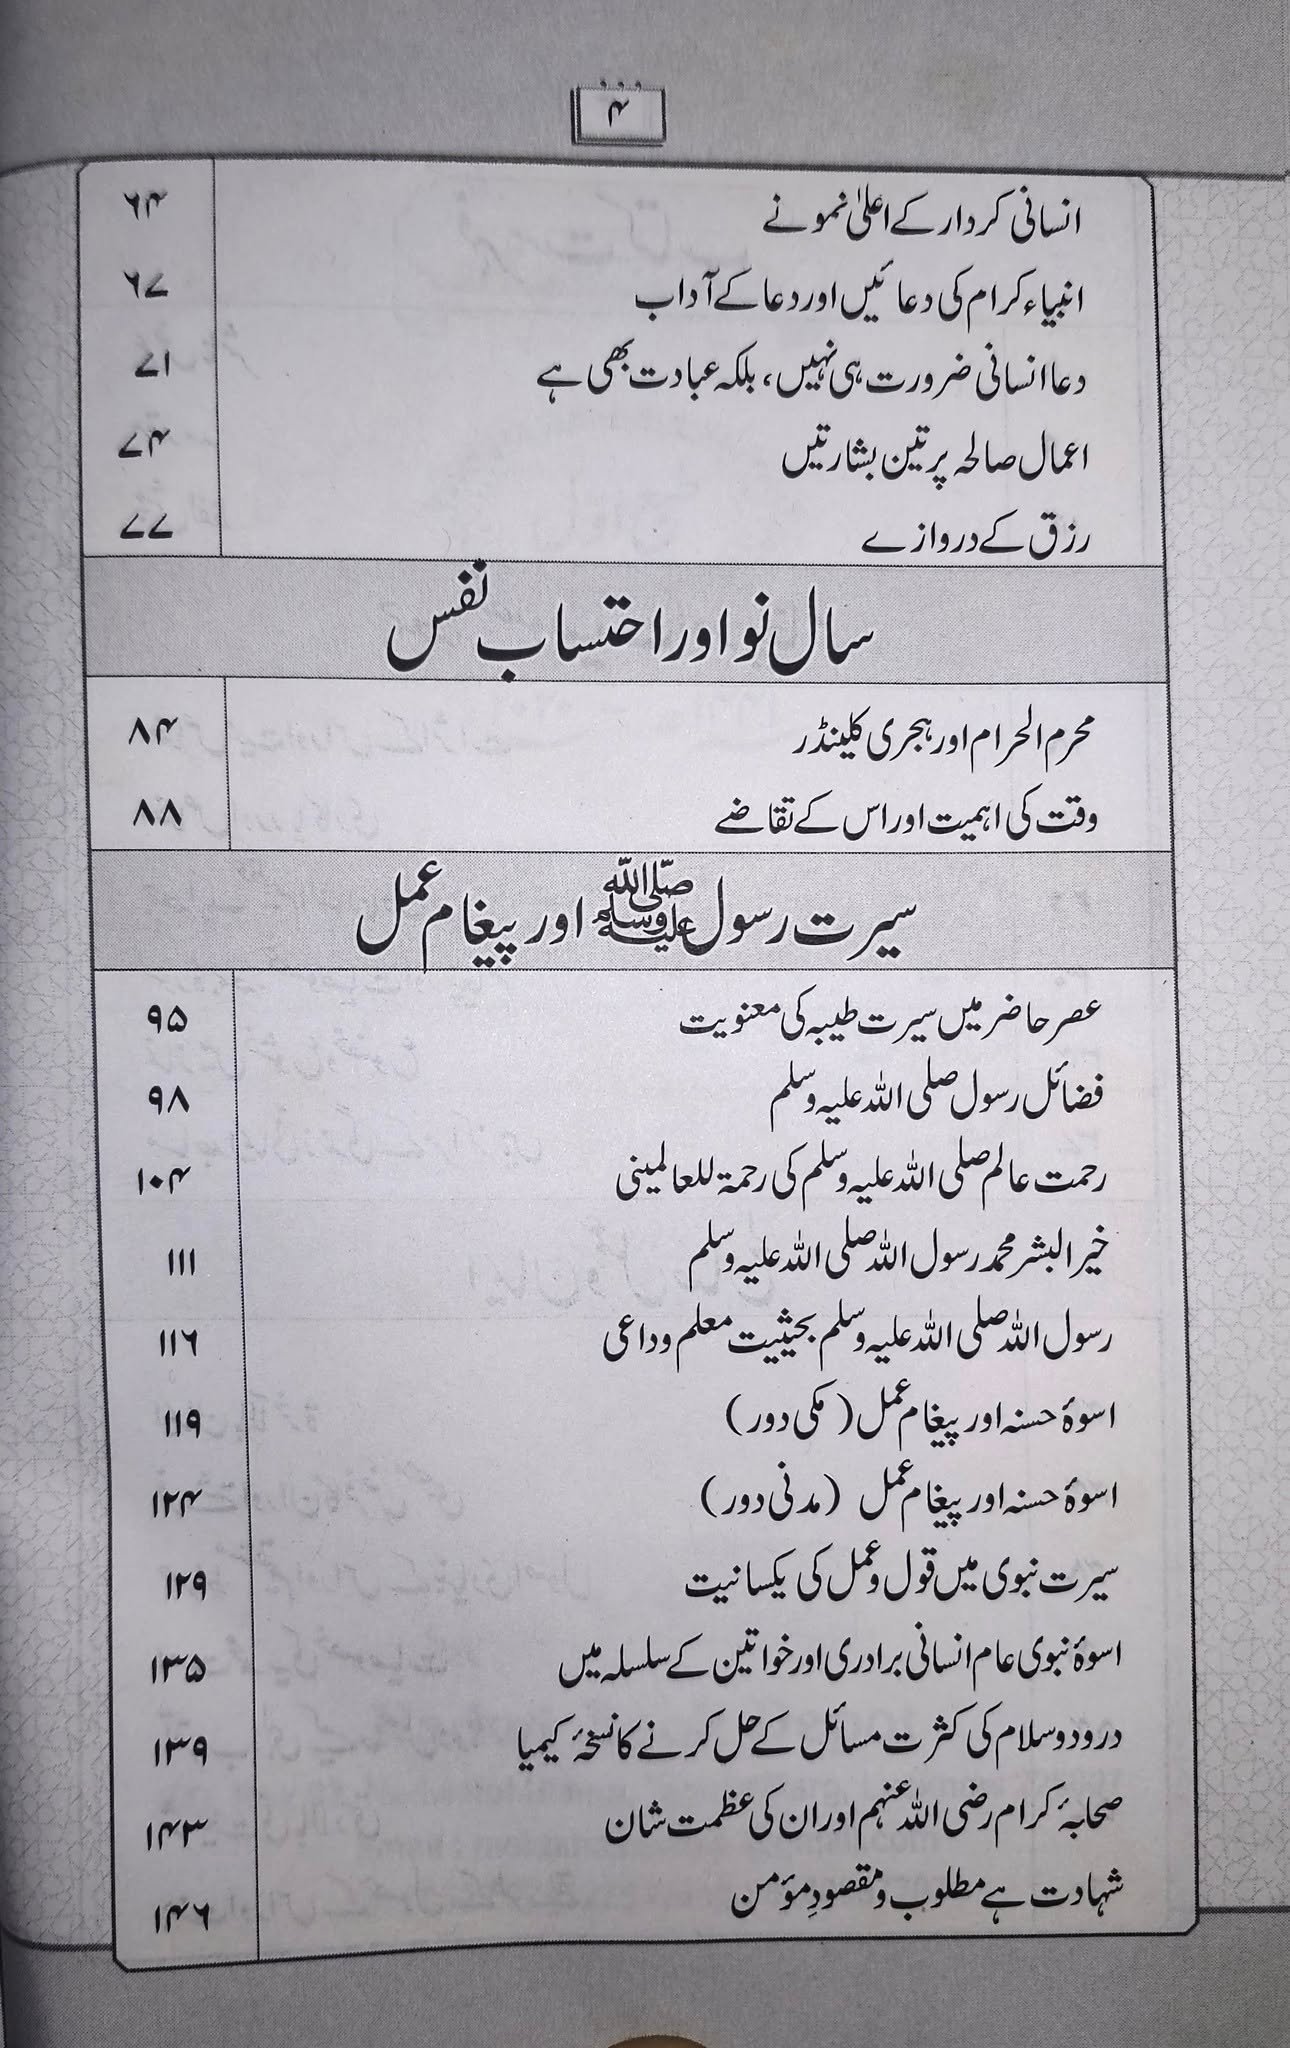 ۴
انسانی کردار کے اعلیٰ نمونے ۶۴
انبیاء کرام کی دعائیں اور دعا کے آداب ۶۷
دعا انسانی ضرورت ہی نہیں، بلکہ عبادت بھی ہے ۷۱
اعمال صالحہ پر تین بشارتیں ۷۴
رزق کے دروازے ۷۷
سال نو اور احتساب نفس
محرم الحرام اور ہجری کلینڈر ۸۴
وقت کی اہمیت اور اس کے تقاضے ۸۸
سیرت رسول ﷺ اور پیغام عمل
عصر حاضر میں سیرت طیبہ کی معنویت ۹۵
فضائل رسول صلی اللہ علیہ وسلم ۹۸
رحمت عالم صلی اللہ علیہ وسلم کی رحمۃ للعالمینی ۱۰۴
خیر البشر محمد رسول اللہ صلی اللہ علیہ وسلم ۱۱۱
رسول اللہ صلی اللہ علیہ وسلم بحیثیت معلم و داعی ۱۱۶
اسوۂ حسنہ اور پیغام عمل (مکی دور) ۱۱۹
اسوۂ حسنہ اور پیغام عمل (مدنی دور) ۱۲۴
سیرت نبوی میں قول و عمل کی یکسانیت ۱۲۹
اسوۂ نبوی عام انسانی برادری اور خواتین کے سلسلہ میں ۱۳۵
درود و سلام کی کثرت مسائل کے حل کرنے کا نسخۂ کیمیا ۱۳۹
صحابۂ کرام رضی اللہ عنہم اور ان کی عظمت شان ۱۴۳
شہادت ہے مطلوب و مقصودِ مؤمن ۱۴۶